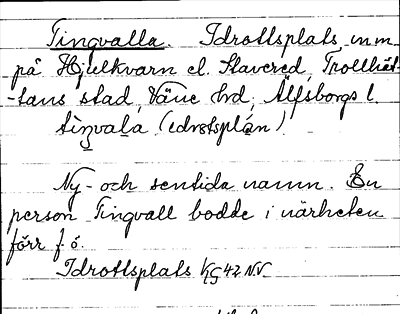 Tingvalla. Idrottsplats m.m.
på Hjulkvarn el. Stavered, Trollhät-
-tans stad, Väne hrd, Älfsborgs l.
tiŋvala (idrotsplán)
Ny- och sentida namn. En
person Tingvall bodde i närheten
förr f ö.
Idrottsplats KG 42 NV